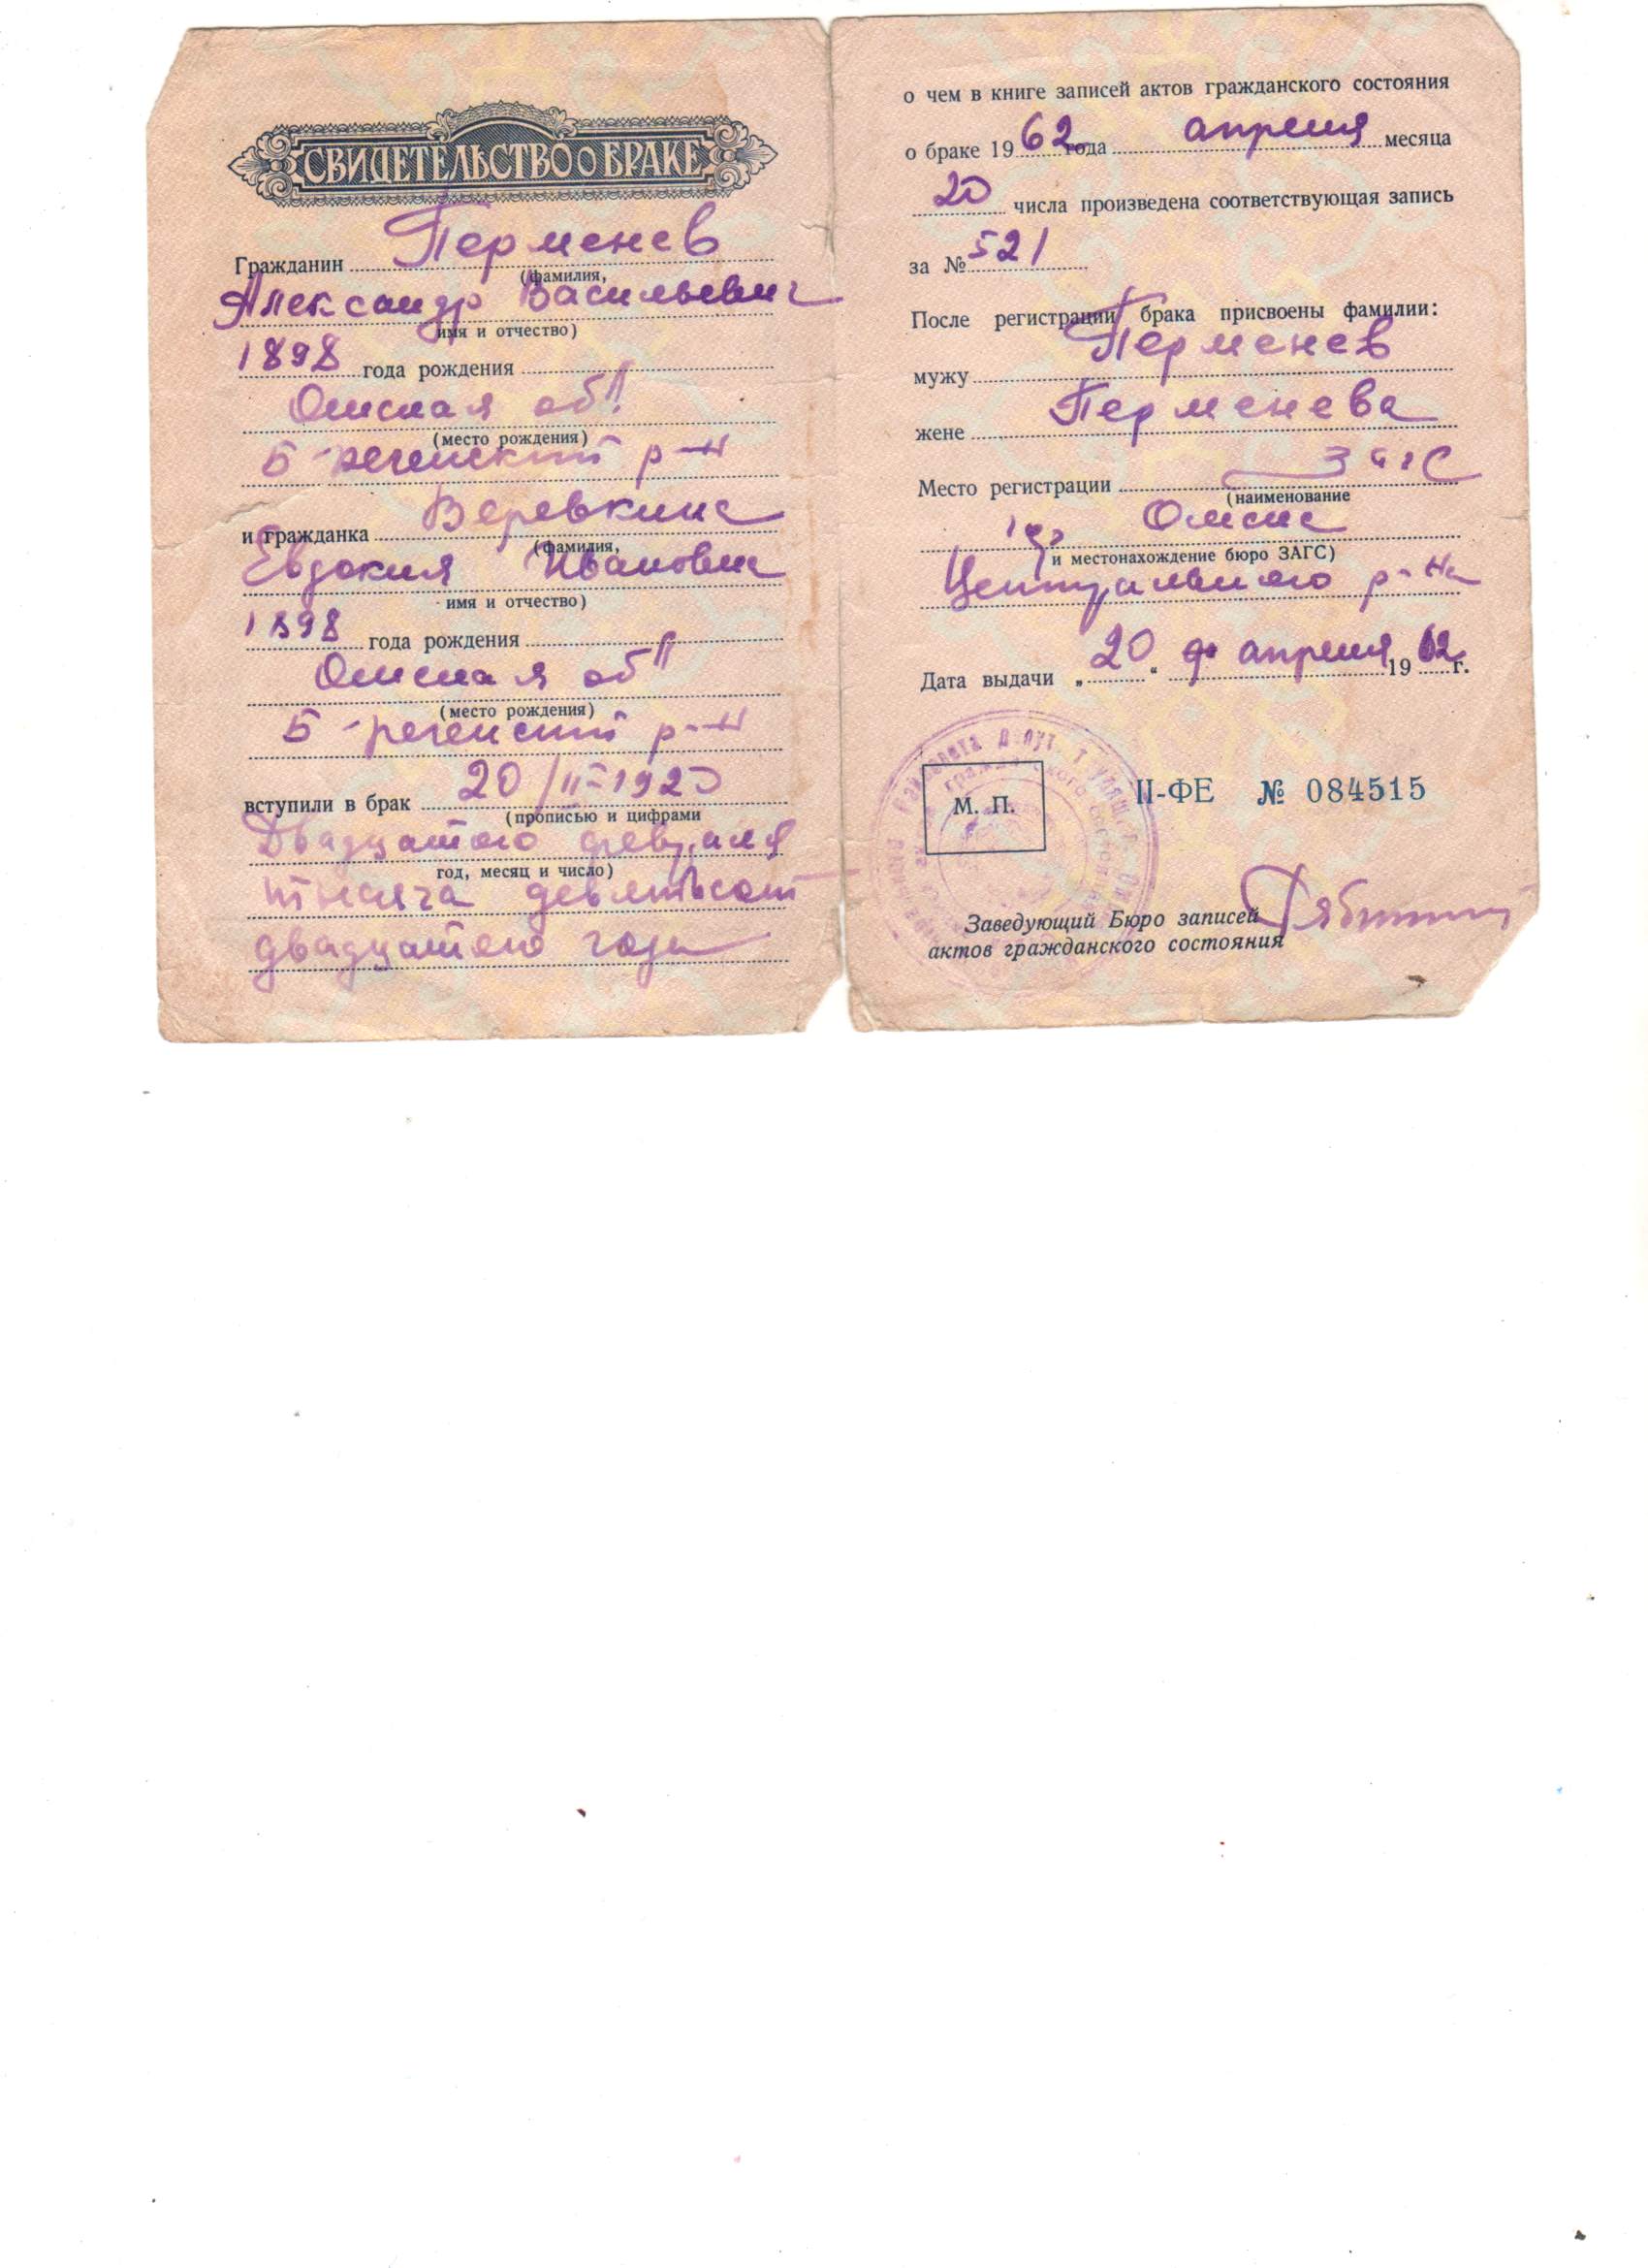 СВИДЕТЕЛЬСТВО о БРАКЕ
Гражданин Перменев
(фамилия,
Александр Васильевич
имя и отчество)
1898 года рождения
Омская обл
(место рождения)
Б-реченский р-н
и гражданка Веревкина
(фамилия,
Евдокия Ивановна
имя и отчество)
1898 года рождения
Омская обл
(место рождения)
Б-реченский р-н
вступили в брак 20/II-1920
(прописью и цифрами
Двадцатого февраля
год, месяц и число)
тысяча девятьсот
двадцатого года
о чем в книге записей актов гражданского состояния
о браке 1962 года апреля месяца
20 числа произведена соответствующая запись
за № 521
После регистрации брака присвоены фамилии:
мужу Перменев
жене Перменева
Место регистрации ЗАГС
(наименование
гор Омска
и местонахождение бюро ЗАГС)
Центрального р-на
Дата выдачи „20“ апреля 1962 г.
М. П.
II-ФЕ № 084515
Заведующий Бюро записей
актов гражданского состояния